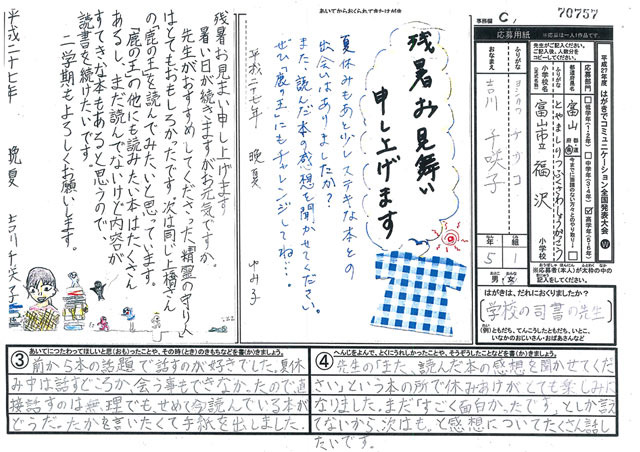 あいてからおくられてきたはがき
事務局 C
70757
平成27年度 はがきでコミュニケーション全国発表大会 W
応募用紙
※応募は一人1作品です。
先生がご記入ください。
ご記入後、人数分を
コピーしてください。
応募部門
低学年(1・2年)
中学年(3・4年)
☑高学年(5・6年)
都道府県名
富山
今までに面識のない方々とのやり取り
ふりがな
とやましりつふくさわしょうがっこう
小学校名
富山市立 福沢 小学校
ふりがな
ヨシカワ チサコ
おなまえ
吉川 千咲子
5年
1組
男・女
※応募者(本人)が太枠の中の
記入をしてください。
はがきは、だれにおくりましたか?
学校の司書の先生
(例)ともだち、てんこうしたともだち、いとこ、
いなかのおじいさん・おばあさんなど
残暑お見舞い
申し上げます
夏休みもあと少し、ステキな本との
出会いはありましたか?
また、読んだ本の感想を聞かせてください。
ぜひ「鹿の王」にもチャレンジしてね…。
平成二十七年 晩夏
ゆみ子
残暑お見まい申し上げます
暑い日が続きますがお元気ですか。
先生がおすすめしてくださった「精霊の守り人」
はとてもおもしろかったです。次は同じ上橋さん
の「鹿の王」を読んでみたいと思っています。
「鹿の王」の他にも読みたい本はたくさん
あるし、まだ読んでないけど内容が
すてきな本もあると思うので、
読書を続けたいです。
二学期もよろしくお願いします。
平成二十七年 晩夏
吉川千咲子
③ あいてにつたわってほしいと思(おも)ったことや、その時(とき)のきもちなどを書(か)きましょう。
前から本の話題で話すのが好きでした。夏休
み中は話すどころか、会う事もできなかったので直
接話すのは無理でも、せめて今読んでいる本が
どうだったかを言いたくて手紙を出しました。
④ へんじをよんで、とくにうれしかったことや、そうぞうしたことなどを書(か)きましょう。
先生の「また、読んだ本の感想を聞かせてくだ
さい」という本の所で休みあけがとても楽しみに
なりました。まだ「すごく面白かったです」としか言え
てないから、次はもっと感想についてたくさん話し
たいです。